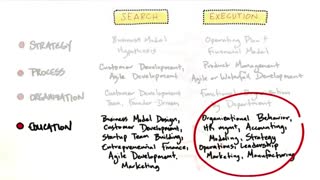 SEARCH
EXECUTION
STRATEGY
Business Model
Hypothesis
Operating Plan +
Financial Model
PROCESS
Customer Development,
Agile Development
Product Management
Agile or Waterfall Development
ORGANISATION
Customer Development
Team, Founder Driven
Functional Organisation
by Department
EDUCATION
Business Model Design,
Customer Development,
Startup Team Building,
Entrepreneurial Finance,
Agile Development,
Marketing
Organizational Behavior,
HR mgmt, Accounting,
Modeling, Strategy
Operations, Leadership
Marketing, Manufacturing